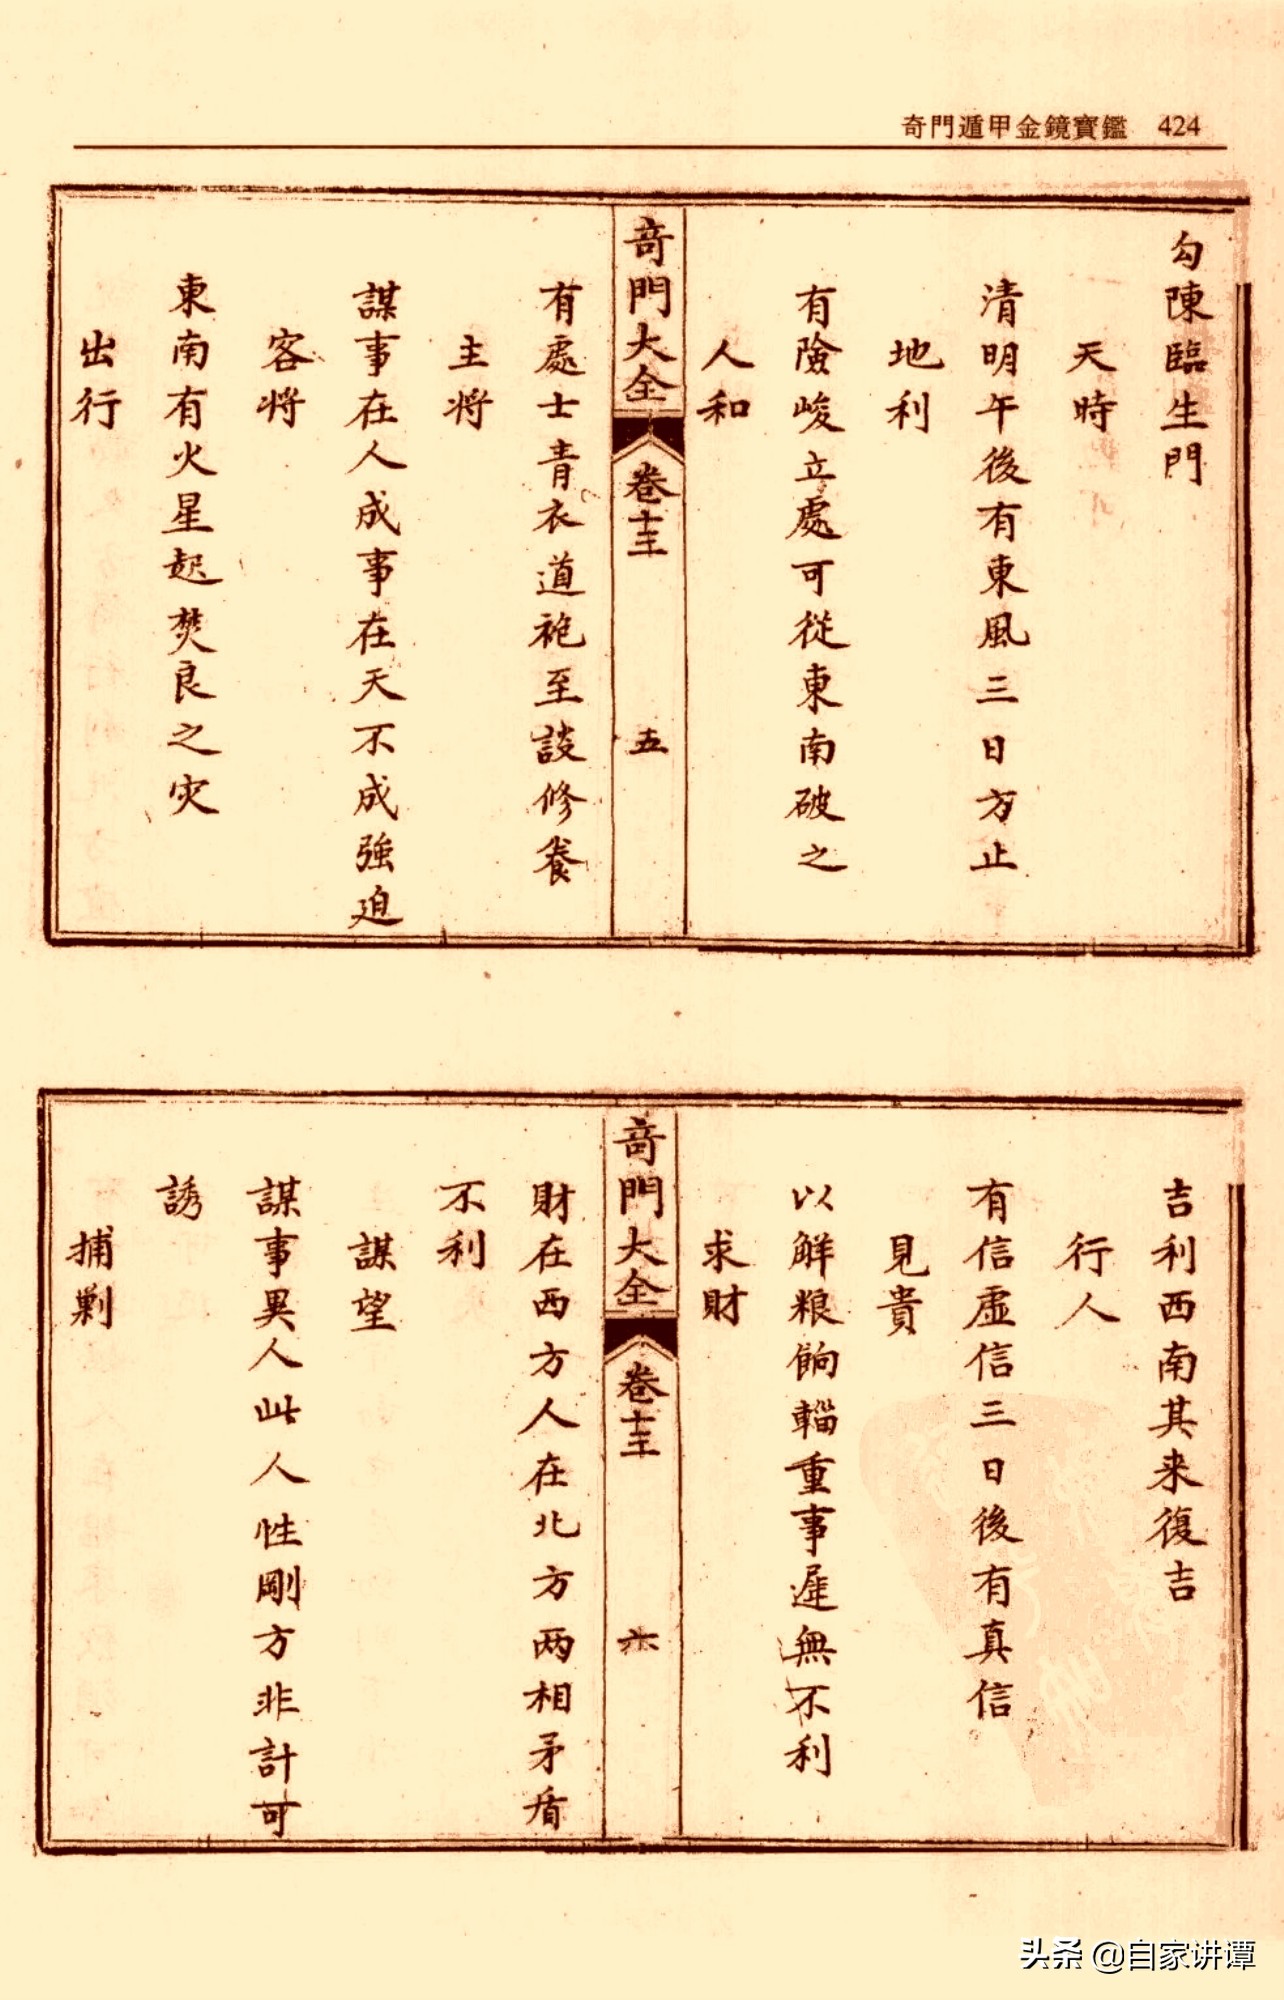 奇門遁甲金鏡寶鑑 424
勾陳臨生門
天時
清明午後有東風三日方止
地利
有險峻立處可從東南破之
人和
奇門大全 卷十三 五
有處士青衣道袍至談修養
主將
謀事在人成事在天不成強迫
客將
東南有火星起焚良之灾
出行
吉利西南其来復吉
行人
有信虛信三日後有真信
見貴
以解粮餉輜重事遲無不利
求財
奇門大全 卷十三 六
財在西方人在北方两相矛盾
不利
謀望
謀事異人此人性剛方非計可
誘
捕剿
头条 @自家讲谭